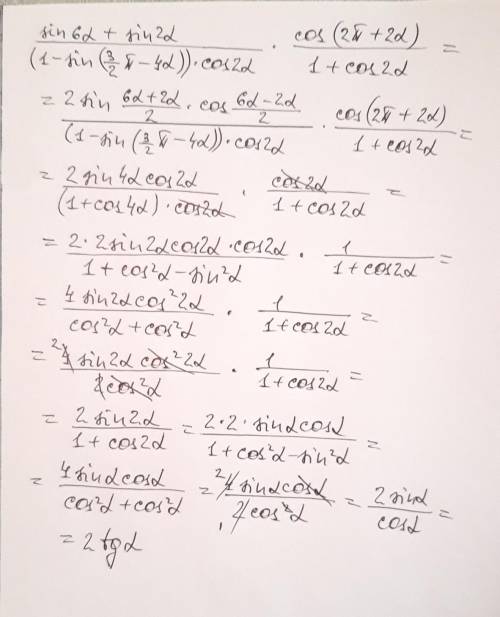 (sin6α + sin2α)/((1-sin(3/2 π-4α))·cos2α) · cos(2π+2α)/(1+cos2α) =
= (2 sin (6α+2α)/2 · cos (6α-2α)/2)/((1-sin(3/2 π-4α))·cos2α) · cos(2π+2α)/(1+cos2α) =
= (2 sin4α cos2α)/((1+cos4α)·cos2α) · cos2α/(1+cos2α) =
= (2·2sin2αcos2α·cos2α)/(1+cos²α-sin²α) · 1/(1+cos2α) =
= (4 sin2αcos²2α)/(cos²α+cos²α) · 1/(1+cos2α) =
= ²(4 sin2α cos²2α)/(2cos²α) · 1/(1+cos2α) =
= (2 sin2α)/(1+cos2α) = (2·2·sinαcosα)/(1+cos²α-sin²α) =
= (4sinαcosα)/(cos²α+cos²α) = ²(4sinαcosα)/(2cos²α) = (2sinα)/(cosα) =
= 2tgα